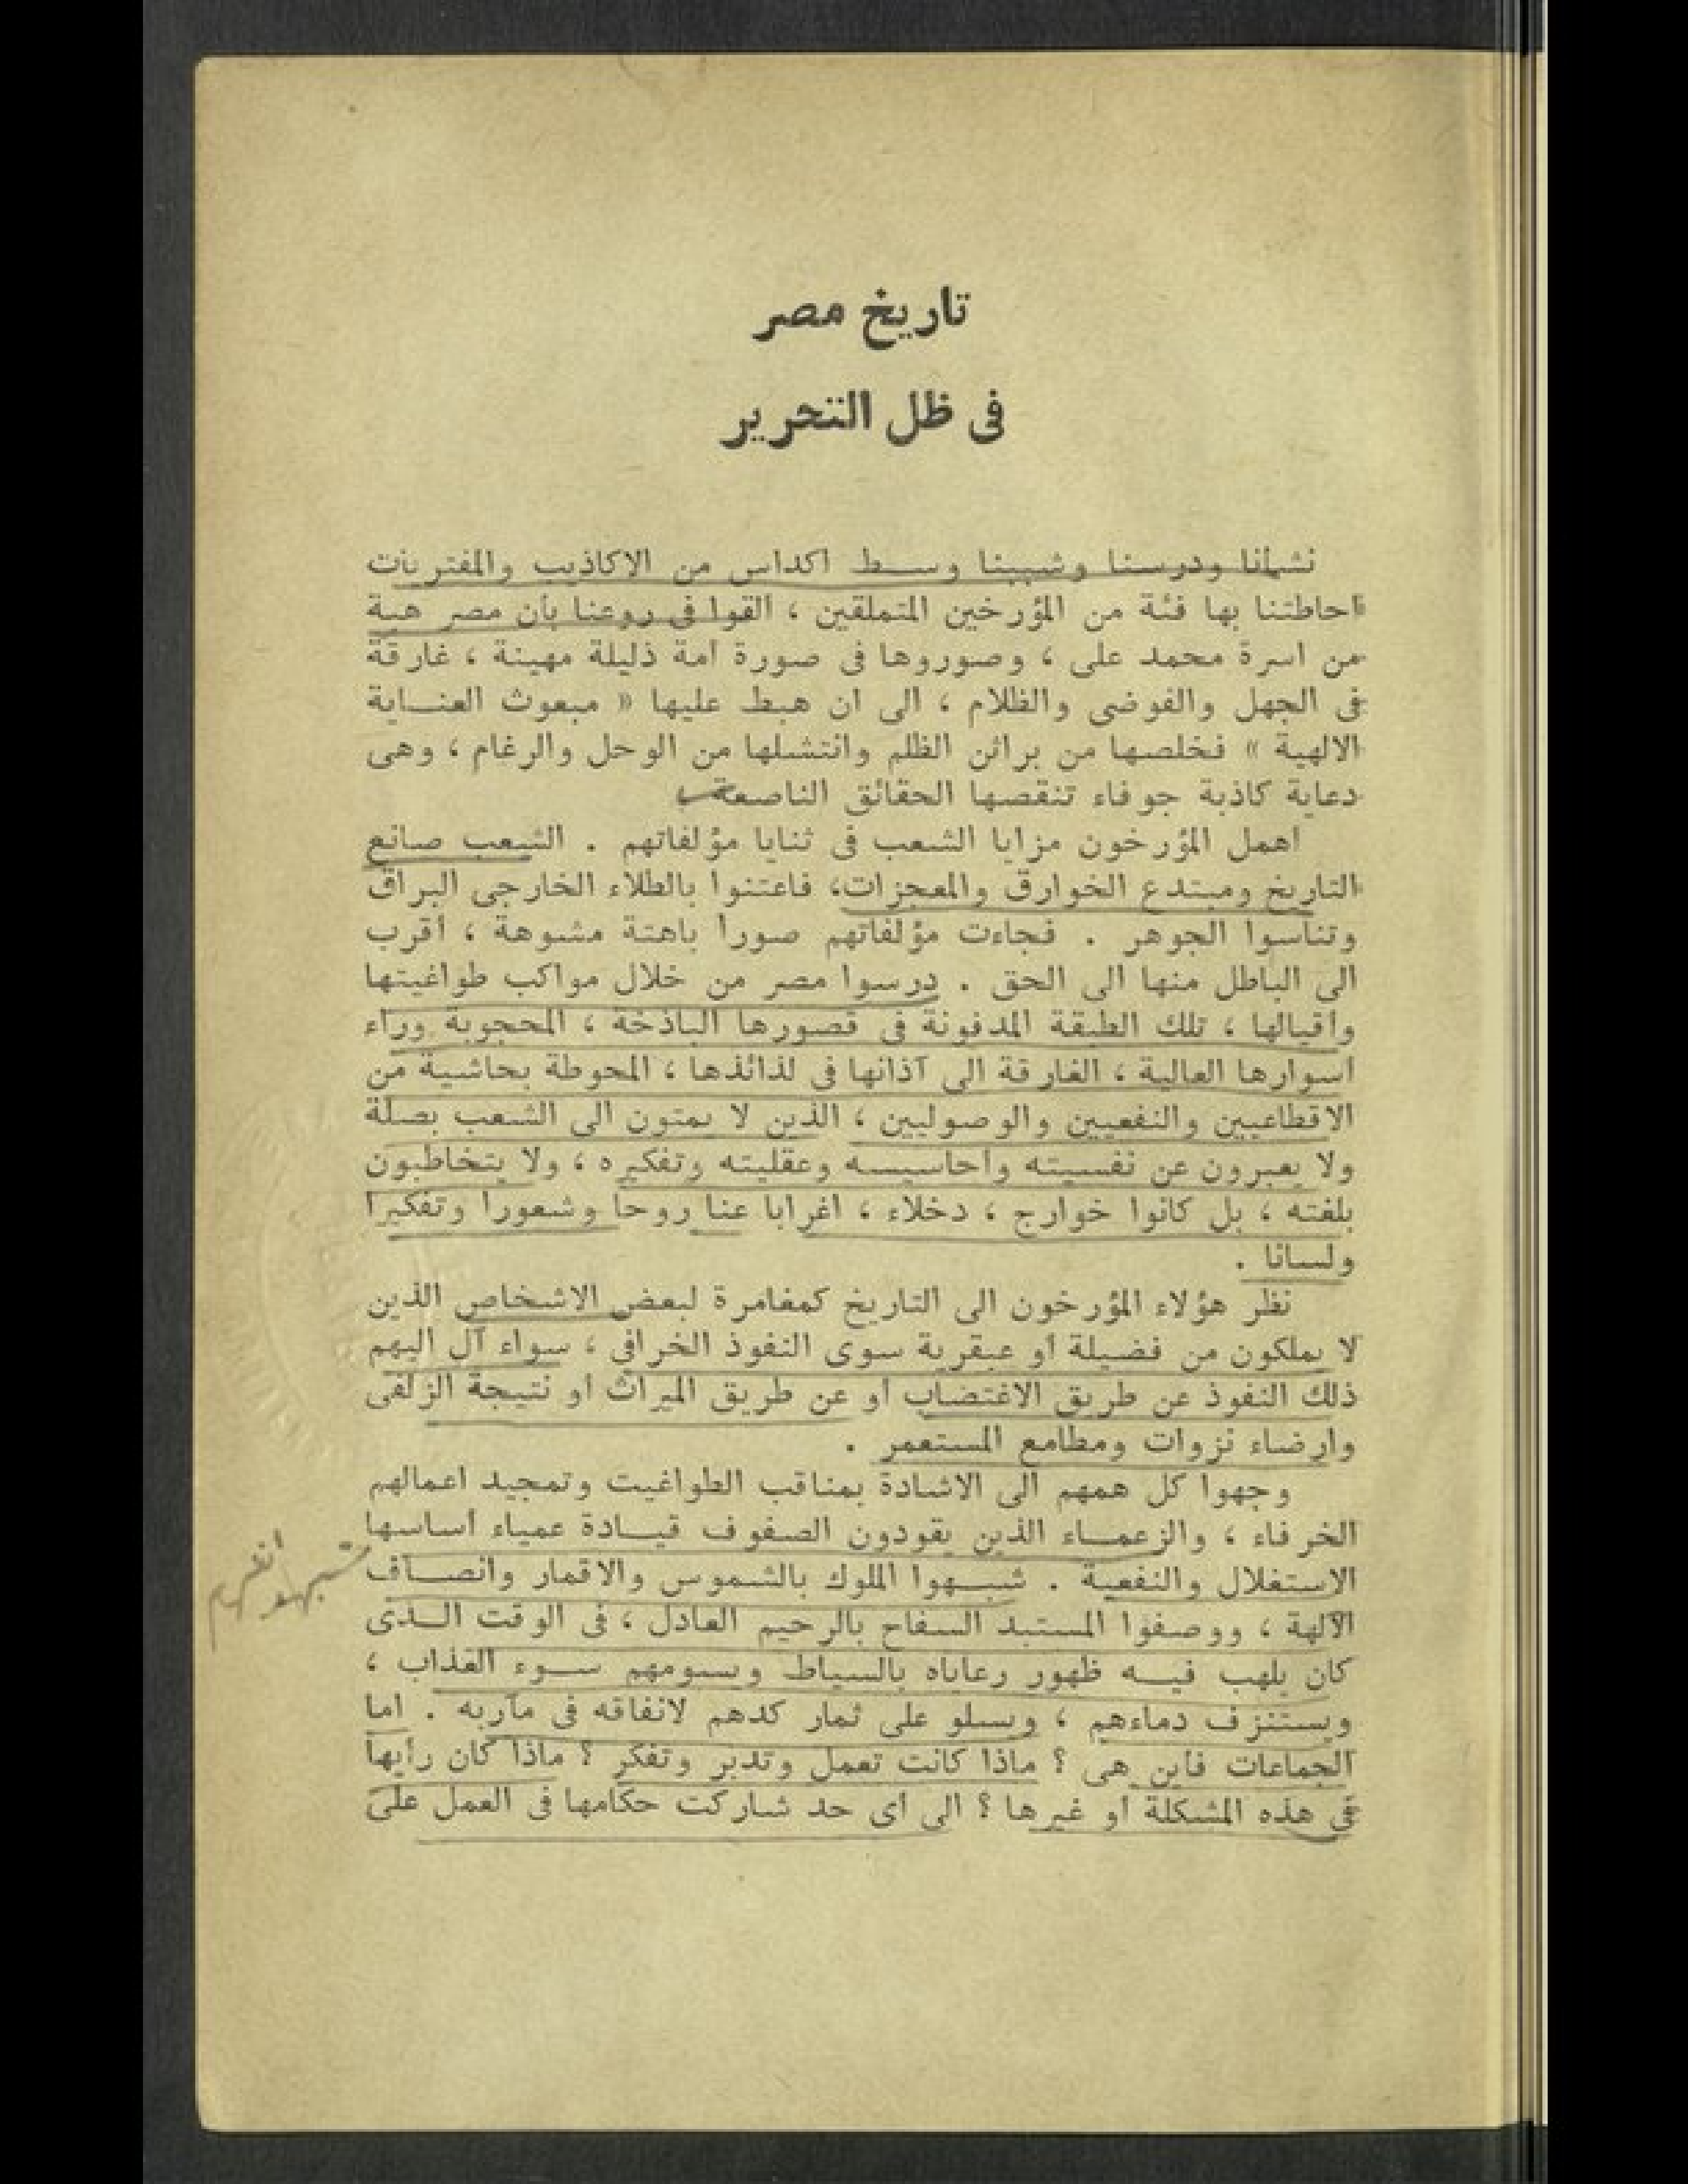 تاريخ مصر
فى ظل التحرير
نشأنا ودرسنا وشببنا وسط اكداس من الاكاذيب والمفتريات
احاطتنا بها فئة من المؤرخين المتملقين ، ألقوا فى روعنا بأن مصر هبة
من اسرة محمد على ، وصوروها فى صورة أمة ذليلة مهينة ، غارقة
فى الجهل والفوضى والظلام ، الى ان هبط عليها « مبعوث العناية
الالهية » فخلصها من براثن الظلم وانتشلها من الوحل والرغام ، وهى
دعاية كاذبة جوفاء تنقصها الحقائق الناصعة
اهمل المؤرخون مزايا الشعب فى ثنايا مؤلفاتهم . الشعب صانع
التاريخ ومبتدع الخوارق والمعجزات، فاعتنوا بالطلاء الخارجى البراق
وتناسوا الجوهر . فجاءت مؤلفاتهم صورا باهتة مشوهة ، أقرب
الى الباطل منها الى الحق . درسوا مصر من خلال مواكب طواغيتها
وأقيالها ، تلك الطبقة المدفونة فى قصورها الباذخة ، المحجوبة وراء
أسوارها العالية ، الغارقة الى آذانها فى لذائذها ، المحوطة بحاشية من
الاقطاعيين والنفعيين والوصوليين ، الذين لا يمتون الى الشعب بصلة
ولا يعبرون عن نفسيته وأحاسيسه وعقليته وتفكيره ، ولا يتخاطبون
بلغته ، بل كانوا خوارج ، دخلاء ، اغرابا عنا روحا وشعورا وتفكيرا
ولسانا .
نظر هؤلاء المؤرخون الى التاريخ كمغامرة لبعض الاشخاص الذين
لا يملكون من فضيلة أو عبقرية سوى النفوذ الخرافى ، سواء آل اليهم
ذلك النفوذ عن طريق الاغتصاب أو عن طريق الميراث أو نتيجة الزلفى
وارضاء نزوات ومطامع المستعمر .
وجهوا كل همهم الى الاشادة بمناقب الطواغيت وتمجيد اعمالهم
الخرفاء ، والزعماء الذين يقودون الصفوف قيادة عمياء أساسها
الاستغلال والنفعية . شبهوا الملوك بالشموس والاقمار وانصاف
الآلهة ، ووصفوا المستبد السفاح بالرحيم العادل ، فى الوقت الذى
كان يلهب فيه ظهور رعاياه بالسياط ويسومهم سوء العذاب ،
ويستنزف دماءهم ، ويسلو على ثمار كدهم لانفاقه فى مآربه . اما
الجماعات فأين هى ؟ ماذا كانت تعمل وتدبر وتفكر ؟ ماذا كان رأيها
فى هذه المشكلة أو غيرها ؟ الى أى حد شاركت حكامها فى العمل على